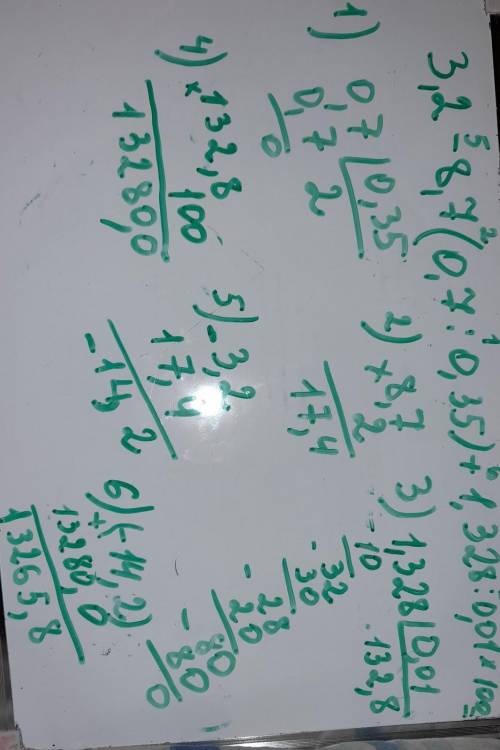 3,2 - 8,7(0,7 : 0,35) + 1,328 : 0,01 × 100
5 2 1 6
1)
0,7 | 0,35
0,7 2
0
2) × 8,7
2
17,4
3) 1,328 | 0,01
10 132,8
- 32
30
- 28
20
- 80
80
0
4) × 132,8
100
13280,0
5) - 3,2
17,4
-14,2
6) + (-14,2)
13280,0
13265,8